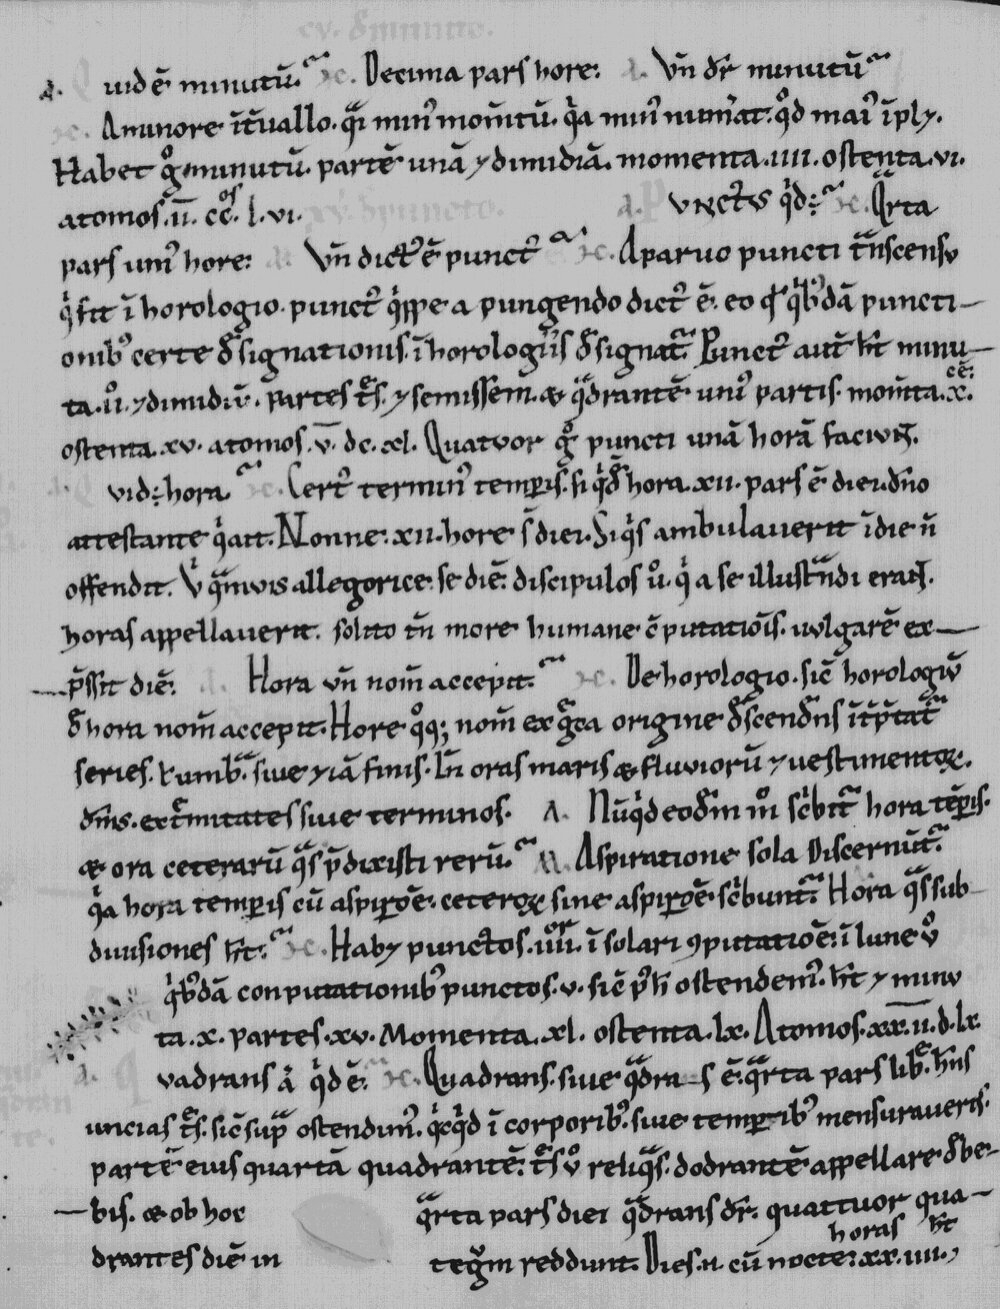 Δ. uid ē minutū. Decima pars hore: Vñ dr̄ minutū
A minore īt̄uallo. qͣi minꝰ momt̄ū. qͥa minꝰ num̄at. qͦd maiꝰ īplꝫ.
Habet gͦ minutū. partē unā ⁊ dimidiā. momenta .iiii. ostenta .vi.
atomos .ii. ccͦˢ. l. vi. Δ. vnctvs qͥd: Qͣrta
pars uniꝰ hore: Vñ dictꝰ ē punctꝰ A paruo puncti tͣnscensu
qͥ fit ī horologio. punctꝰ qͥppe a pungendo dictꝰ ē. eo qđ qͥbꝰdā puncti–
onibꝰ certe designationis. ī horologiis designat̄. Punctꝰ aut̄ hn̄t minu–
ta .ii. ⁊ dimidiū. partes tͤs. ⁊ semissem. & qͣdrantē uniꝰ partis. mom̄ta .x. cē:
ostenta .xv. atomos .v̄. dc. xl. Quatuor gͦ puncti unā horā faciunt.
vid: hora Certꝰ terminꝰ temp̄is. si qͥdē hora .xii. pars ē diei. dn̄o
attestante qͥ ait. Nonne .xii. hore s̄ diei. Si qͥs ambulauerit ī die ñ
offendit. Vͥ qͣmvis allegorice se diē. discipulos uͦ. qͥ a se illustͣndi erant.
horas appellauerit. solito tn̄ more humane c̄putatiōis. uulgarē ex–
–p̄ssit diē. Hora vñ nom̄ accepit. De horologio. sic̄ horologiū
đ hora nom̄ accepit. Hore qͦqꝫ nom̄ ex gͣca origine đscendēns īt̄p̄tat̄
series. t̄ umbͣ. siue ⁊ iā finis. Un̄ oras maris & fluuiorū ⁊ uestimentoꝝ.
dm̄s. ext̄mitates siue terminos. Δ. Nūqͥd eodē mͦ scͥbit̄ hora tēp̄is.
& ora ceterarū qͣs p̄dixisti rerū. M. Aspiratione sola discernūt̄.
qͥa hora temp̄is cū aspirōe. ceteroꝝ sine aspirōe scͥbunt̄. Hora qͣs sub–
diuisiones hn̄t. Habꝫ punctos .iiii. ī solari ꝯputatiōe. ī lune uͦ
qͥbꝰdā conputationibꝰ punctos .v. sic̄ p̄ħ ostendemꝰ. hn̄t ⁊ minu
ta .x. partes .xv. Momenta .xl. ostenta .lx. Atomos .xx.ii. d. lx.
vadrans ā qͥd ē. Quadrans. siue qͣdra–s ē. qͣrta pars libͤ. hn̄s
uncias tͤs. sic̄ supͣ ostendimꝰ. qͥcqͥd ī corporibꝰ. siue temporibꝰ mensuraueris.
partē eius quartā quadrantē. tͤs uͦ reliqͣs. dodrantē appellare đbe–
–bis. & ob hoc qͣrta pars diei qͣdrans dr̄. quattuor qua–
drantes diē in tegͣm reddunt. Dies .n. cū nocte. horas .xx.iiii. hn̄t